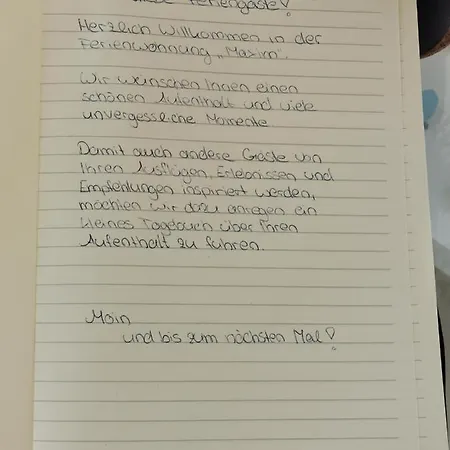 Feriengäste!
Herzlich Willkommen in der
Ferienwohnung „Maxim".
Wir wünschen Ihnen einen
schönen Aufenthalt und viele
unvergessliche Momente
Damit auch andere Gäste von
Ihren Ausflügen, Erlebnissen und
Empfehlungen inspiriert werden,
möchten wir dazu anregen ein
kleines Tagebuch über Ihren
Aufenthalt zu führen.
Moin
und bis zum nächsten Mal!